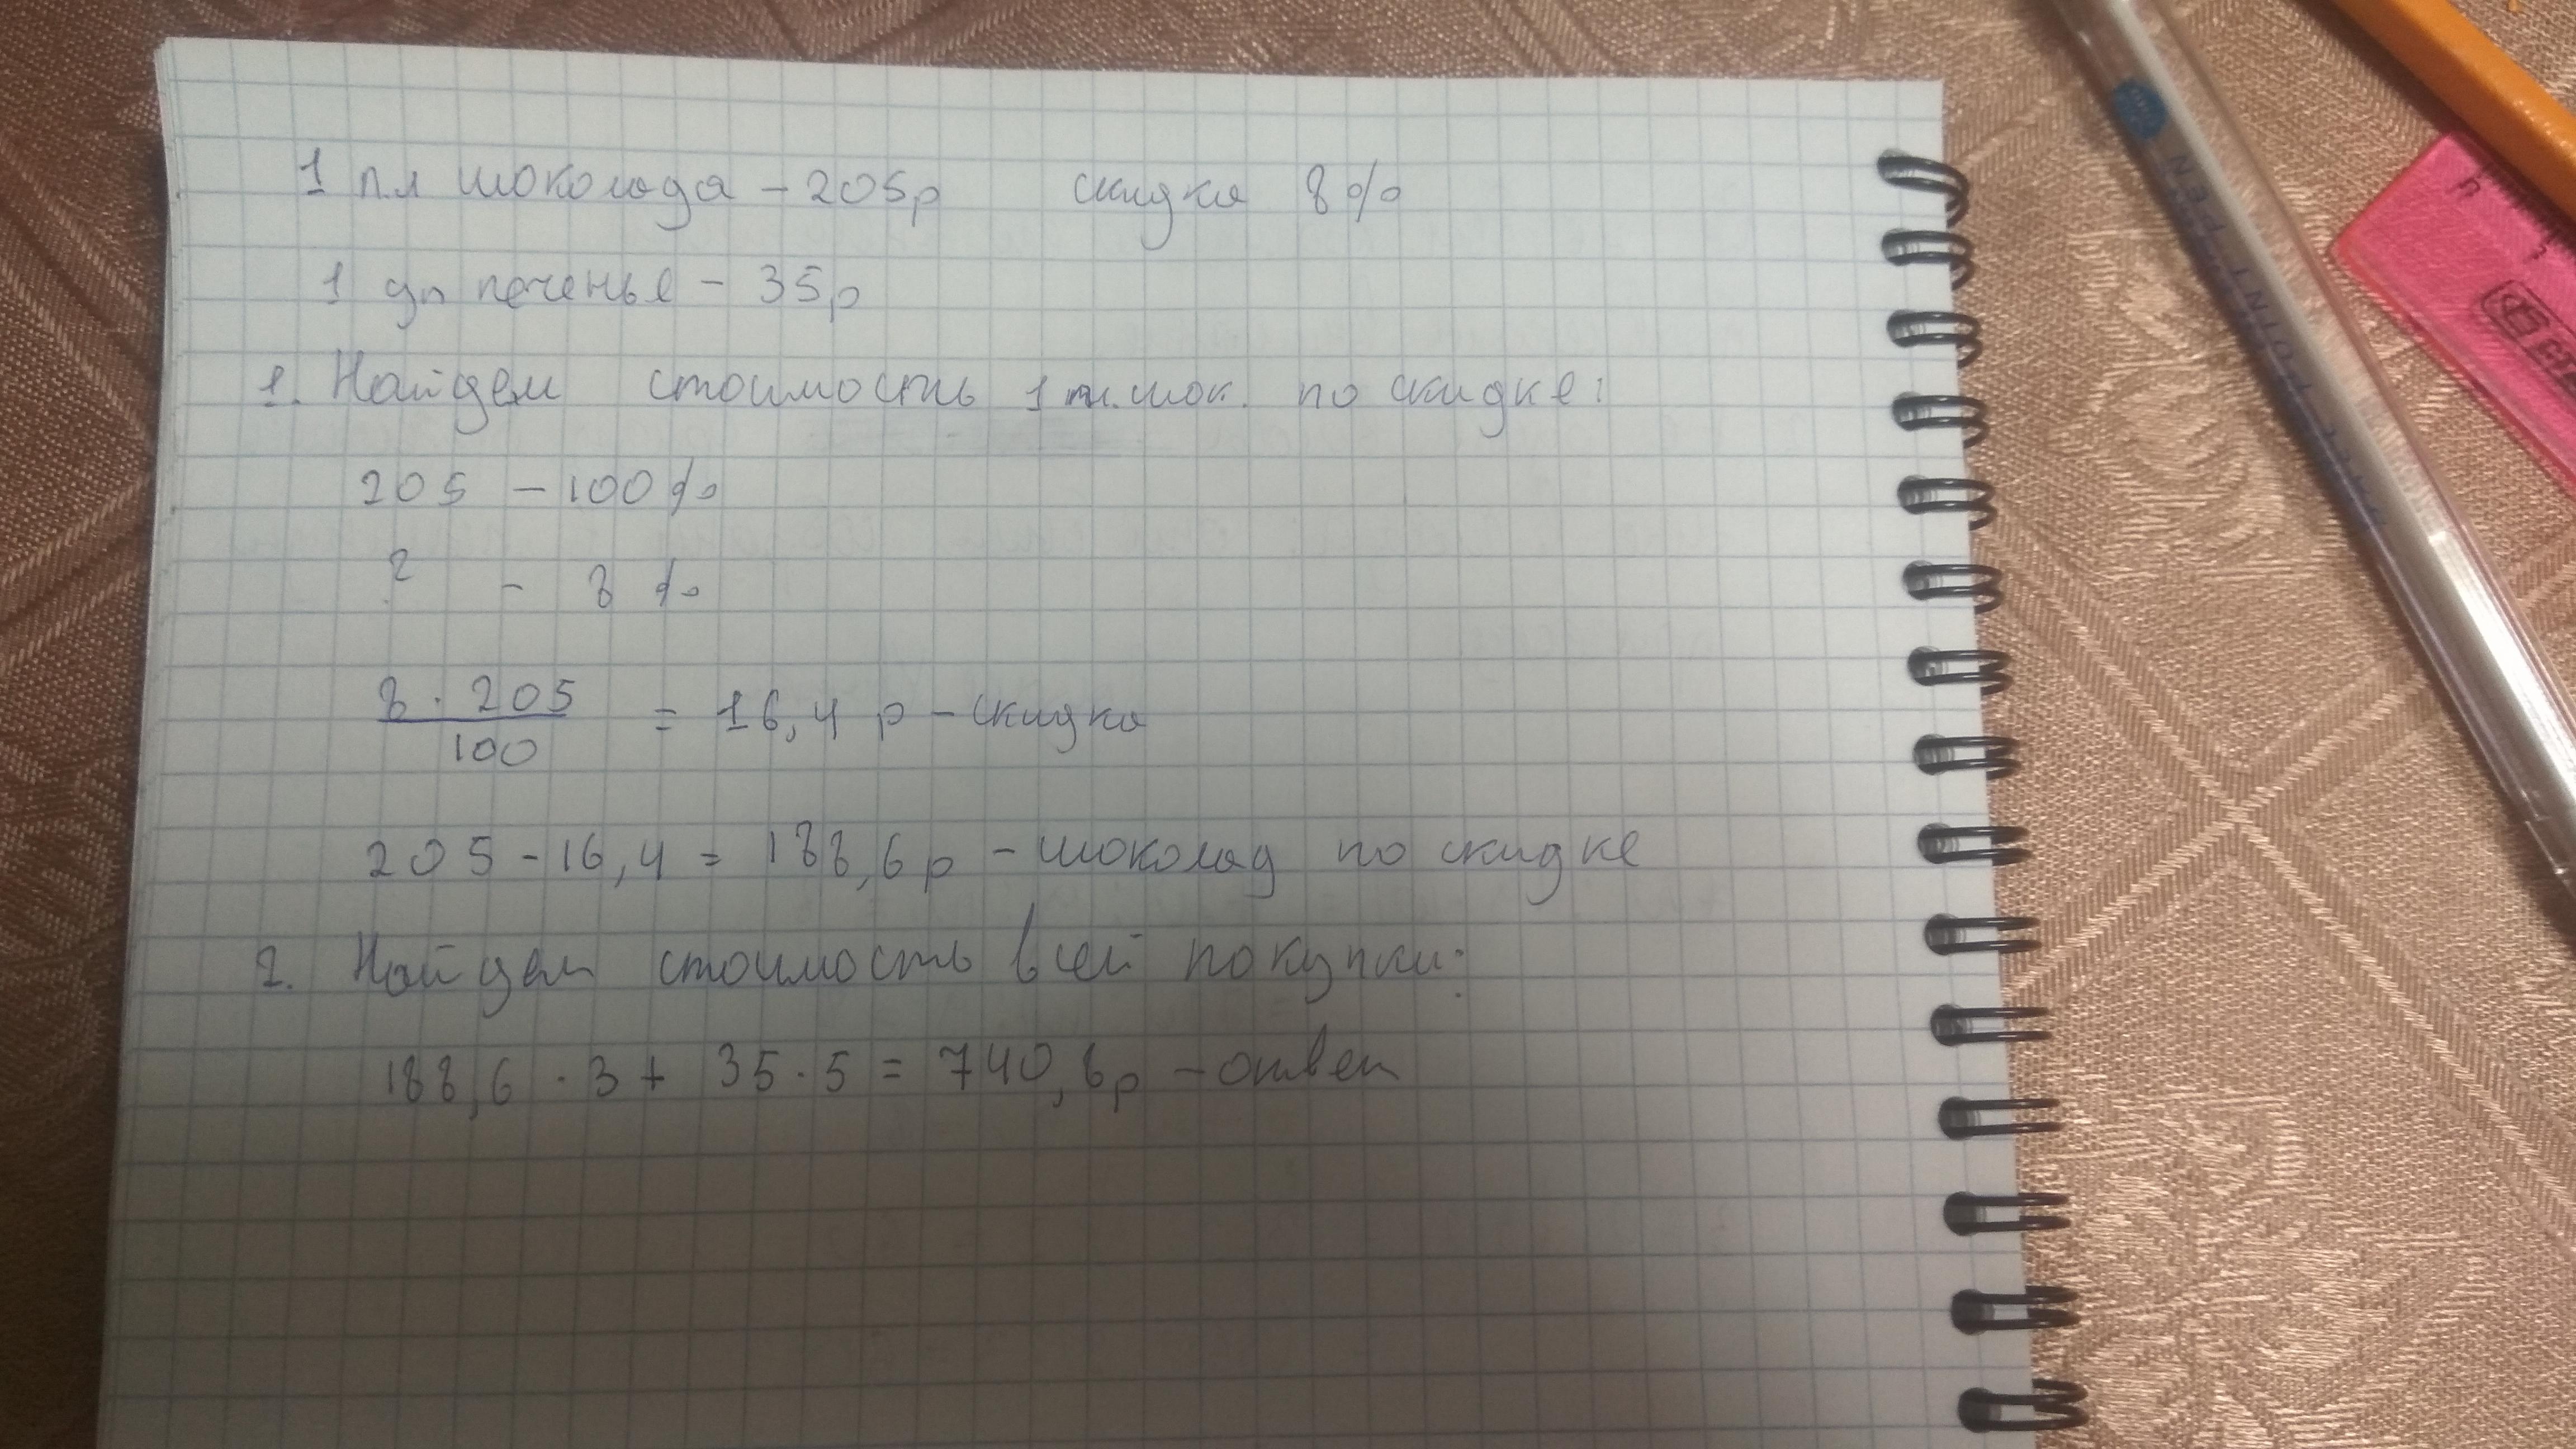 1 пл шоколада - 205р скидка 8%
1 уп печенье - 35р
1. Найдем стоимость 1 пл. шок. по скидке:
205 - 100%
? - 8%
8 · 205
100
= 16,4 р - скидка
205 - 16,4 = 188,6 р - шоколад по скидке
2. Найдем стоимость всей покупки:
188,6 · 3 + 35 · 5 = 740,8р - ответ
POINT PEN